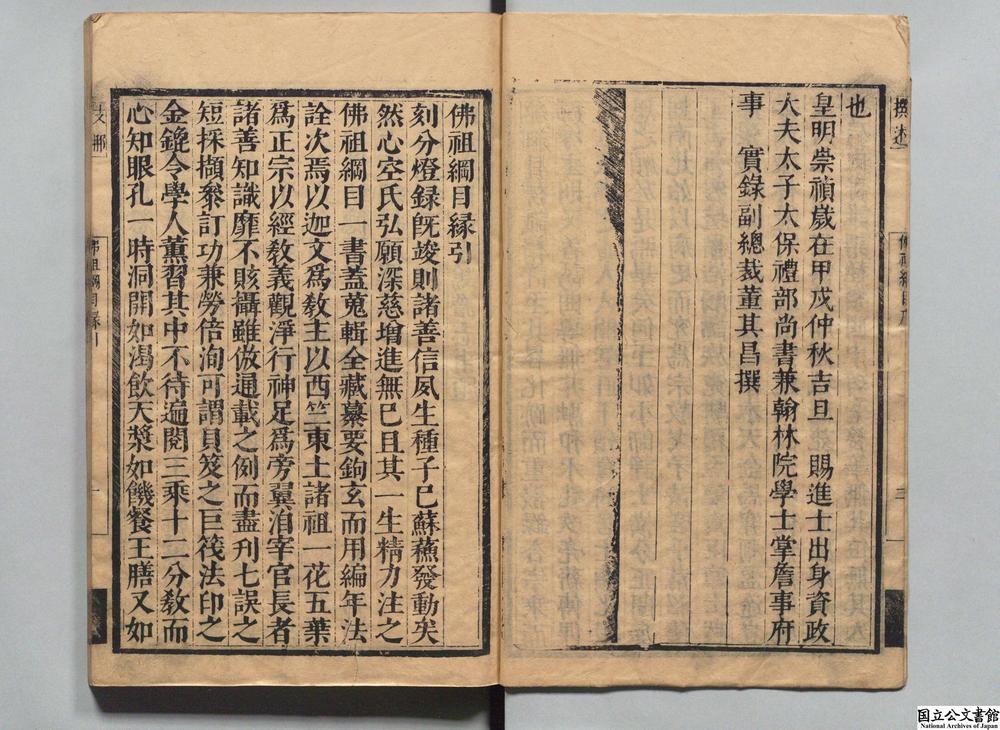 也
皇明崇禎歲在甲戌仲秋吉旦 賜進士出身資政
大夫太子太保禮部尚書兼翰林院學士掌詹事府
事 實錄副總裁董其昌撰
佛祖綱目緣引
刻分燈録旣竣則諸善信夙生種子已蘇蘓發動矣
然心空氏弘願深慈增進無已且其一生精力注之
佛祖綱目一書蓋蒐輯全藏纂要鉤玄而用編年法
詮次焉以迦文爲敎主以西竺東土諸祖一花五葉
爲正宗以經敎義觀淨行神足爲旁翼洎宰官長者
諸善知識靡不賅攝雖倣通載之例而盡刋七誤之
短採擷叅訂功兼勞倍洵可謂貝笈之巨筏法印之
金鎞令學人薰習其中不待遍閱三乘十二分敎而
心知眼孔一時洞開如渴飲天漿如饑餐王膳又如
佛祖綱目緣引
一
国立公文書館
National Archives of Japan